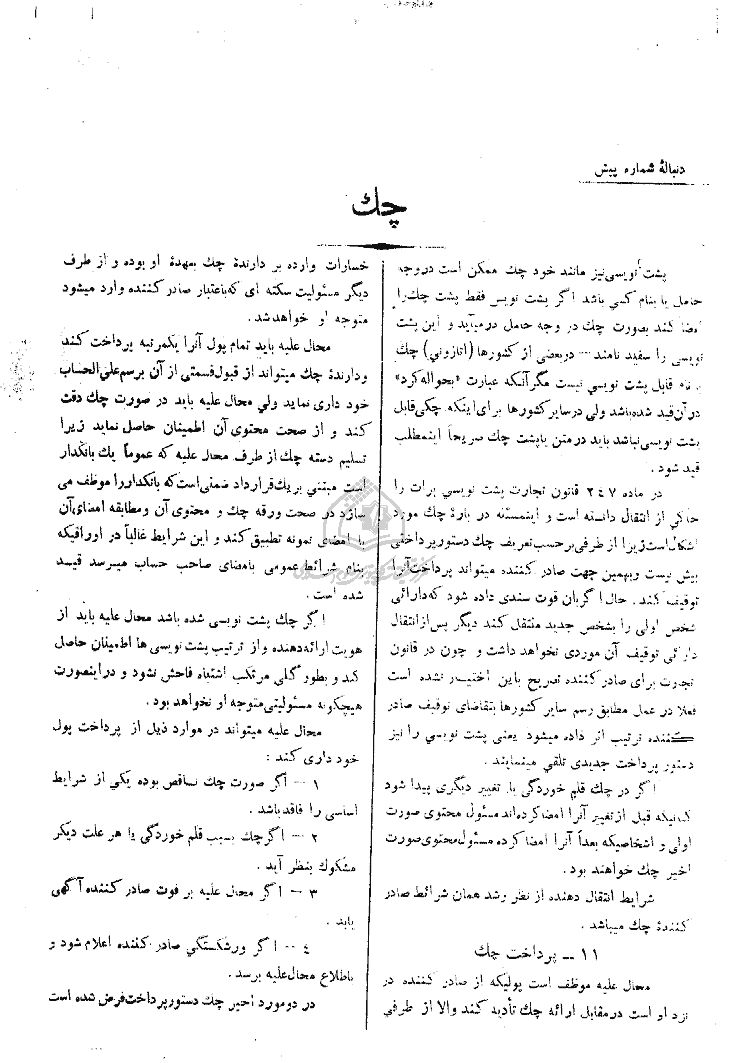 دنبالهٔ شماره پیش
چك
پشت نویسی نیز مانند خود چك ممکن است در وجه
حامل یا بنام کسی باشد اگر پشت نویس فقط پشت چك را
امضا کند بصورت چك در وجه حامل درمیآید و این پشت
نویسی را سفید نامند — در بعضی از کشورها (اتازونی) چك
با نام قابل پشت نویسی نیست مگر آنکه عبارت «بحواله کرد»
در آن قید شده باشد ولی در سایر کشورها برای اینکه چکی قابل
پشت نویسی نباشد باید در متن یا پشت چك صریحاً اینمطلب
قید شود .
در ماده ۲٤۷ قانون تجارت پشت نویسی برات را
حاکی از انتقال دانسته است و اینمسئله در بارهٔ چك مورد
اشکال است زیرا از طرفی بر حسب تعریف چك دستور پرداختی
بیش نیست و بهمین جهت صادر کننده میتواند پرداخت آنرا
توقیف کند . حال اگر بان قوت سندی داده شود که دارائی
شخص اولی را بشخص جدید منتقل کند دیگر پس از انتقال
دارائی توقیف آن موردی نخواهد داشت و چون در قانون
تجارت برای صادر کننده تصریح باین اختیار نشده است
فعلا در عمل مطابق رسم سایر کشورها بتقاضای توقیف صادر
کننده ترتیب اثر داده میشود یعنی پشت نویسی را نیز
دستور پرداخت جدیدی تلقی مینمایند .
اگر در چك قلم خوردگی یا تغییر دیگری پیدا شود
کسانیکه قبل از تغییر آنرا امضا کرده‌اند مسئول محتوی صورت
اولی و اشخاصیکه بعداً آنرا امضا کرده مسئول محتوی صورت
اخیر چك خواهند بود .
شرایط انتقال دهنده از نظر رشد همان شرائط صادر
کنندهٔ چك میباشد .
۱۱ — پرداخت چك
محال علیه موظف است پولیکه از صادر کننده در
نزد او است در مقابل ارائه چك تأدیه کند والا از طرفی
خسارات وارده بر دارندهٔ چك بعهدهٔ او بوده و از طرف
دیگر مسئولیت سکته ای که باعتبار صادر کننده وارد میشود
متوجه او خواهد شد .
محال علیه باید تمام پول آنرا یکمرتبه پرداخت کند
ودارندهٔ چك میتواند از قبول قسمتی از آن برسم علی الحساب
خود داری نماید ولی محال علیه باید در صورت چك دقت
کند و از صحت محتوی آن اطمینان حاصل نماید زیرا
تسلیم دسته چك از طرف محال علیه که عموماً یك بانکدار
است مبتنی بر یك قرارداد ضمنی است که بانکدار را موظف می
سازد در صحت ورقه چك و محتوی آن ومطابقه امضای آن
با امضای نمونه تطبیق کند و این شرایط غالباً در اوراقیکه
بنام شرائط عمومی بامضای صاحب حساب میرسد قیـد
شده است .
اگر چك پشت نویسی شده باشد محال علیه باید از
هویت ارائه دهنده و از ترتیب پشت نویسی ها اطمینان حاصل
کند و بطور کلی مرتکب اشتباه فاحش نشود و در اینصورت
هیچگونه مسئولیتی متوجه او نخواهد بود .
محال علیه میتواند در موارد ذیل از پرداخت پول
خود داری کند :
۱ — اگر صورت چك ناقص بوده یکی از شرایط
اساسی را فاقد باشد .
۲ — اگر چك بسبب قلم خوردگی یا هر علت دیگر
مشکوك بنظر آید .
۳ — اگر محال علیه بر فوت صادر کننده آگهی
یابد .
٤ — اگر ورشکستگی صادر کننده اعلام شود و
باطلاع محال علیه برسد .
در دو مورد اخیر چك دستور پرداخت فرض شده است